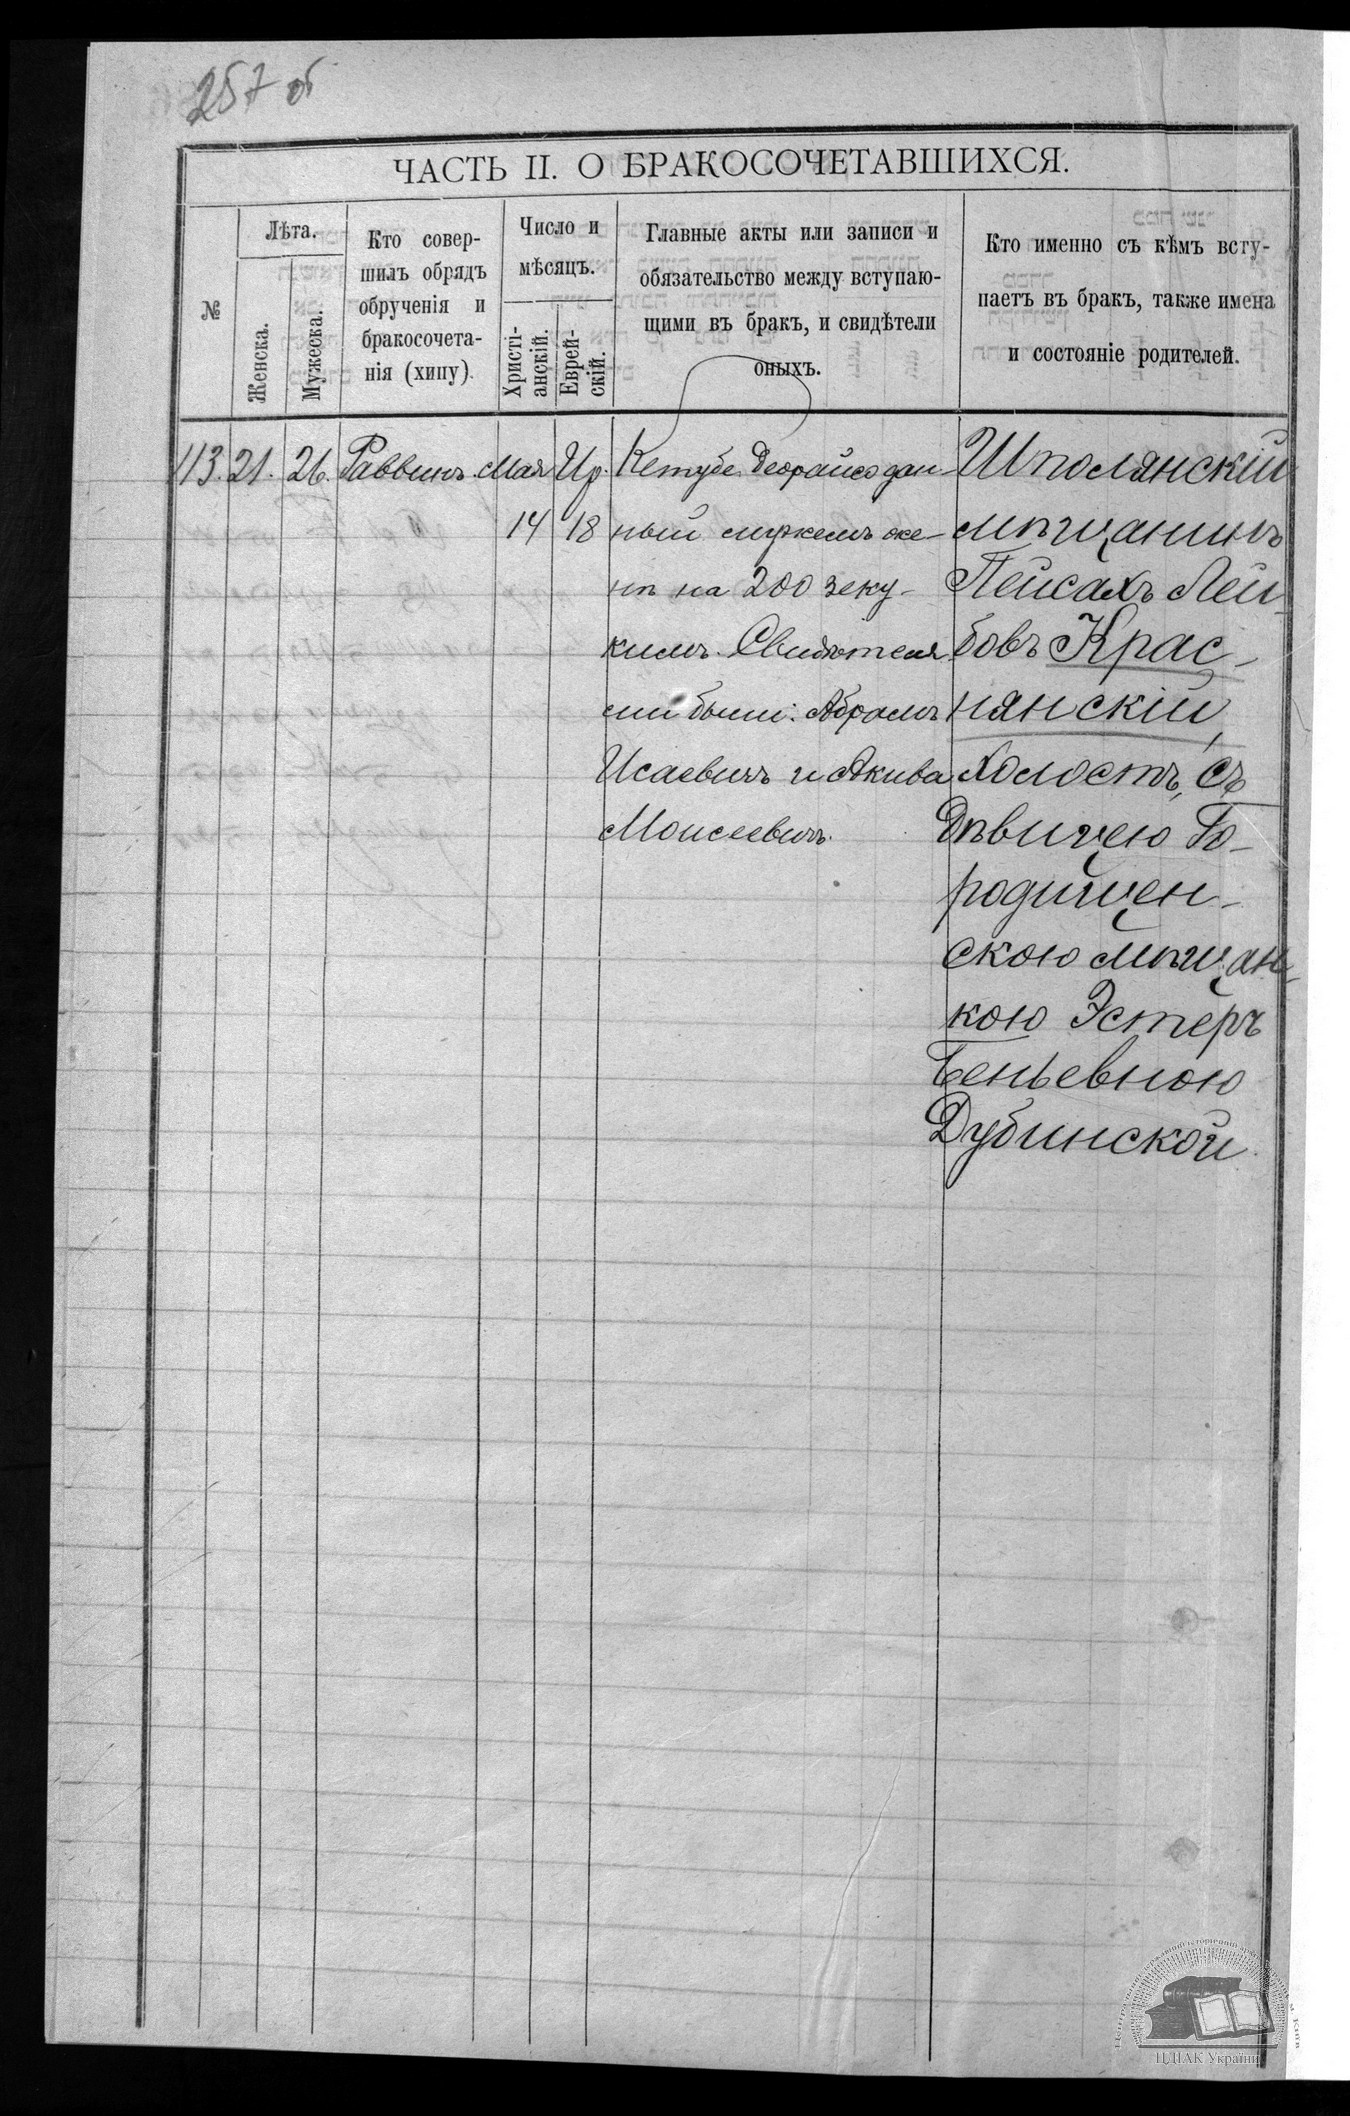 257 об
ЧАСТЬ II. О БРАКОСОЧЕТАВШИХСЯ.
№
Лѣта.
Женска.
Мужеска.
Кто совер-
шилъ обрядъ
обрученія и
бракосочета-
нія (хипу).
Число и
мѣсяцъ.
Христі-
анскій.
Еврей-
скій.
Главные акты или записи и
обязательство между вступаю-
щими въ бракъ, и свидѣтели
оныхъ.
Кто именно съ кѣмъ всту-
паетъ въ бракъ, также имена
и состояніе родителей.
113. 21. 26. Раввинъ. Мая Ир.
14 18
Кетубе Деорайсо дан-
ный мужемъ же-
нѣ на 200 зеку-
кимъ. Свидѣтеля-
ми были: Абрамъ
Исаевичъ и Акива
Моисеевичъ.
Шполянскій
мѣщанинъ
Пейсахъ Лей-
бовъ Крас-
нянскій,
холостъ, съ
Дѣвицею Го-
родищен-
скою мѣщан-
кою Эстеръ
Беньевною
Дубинской.
ЦДІАК України